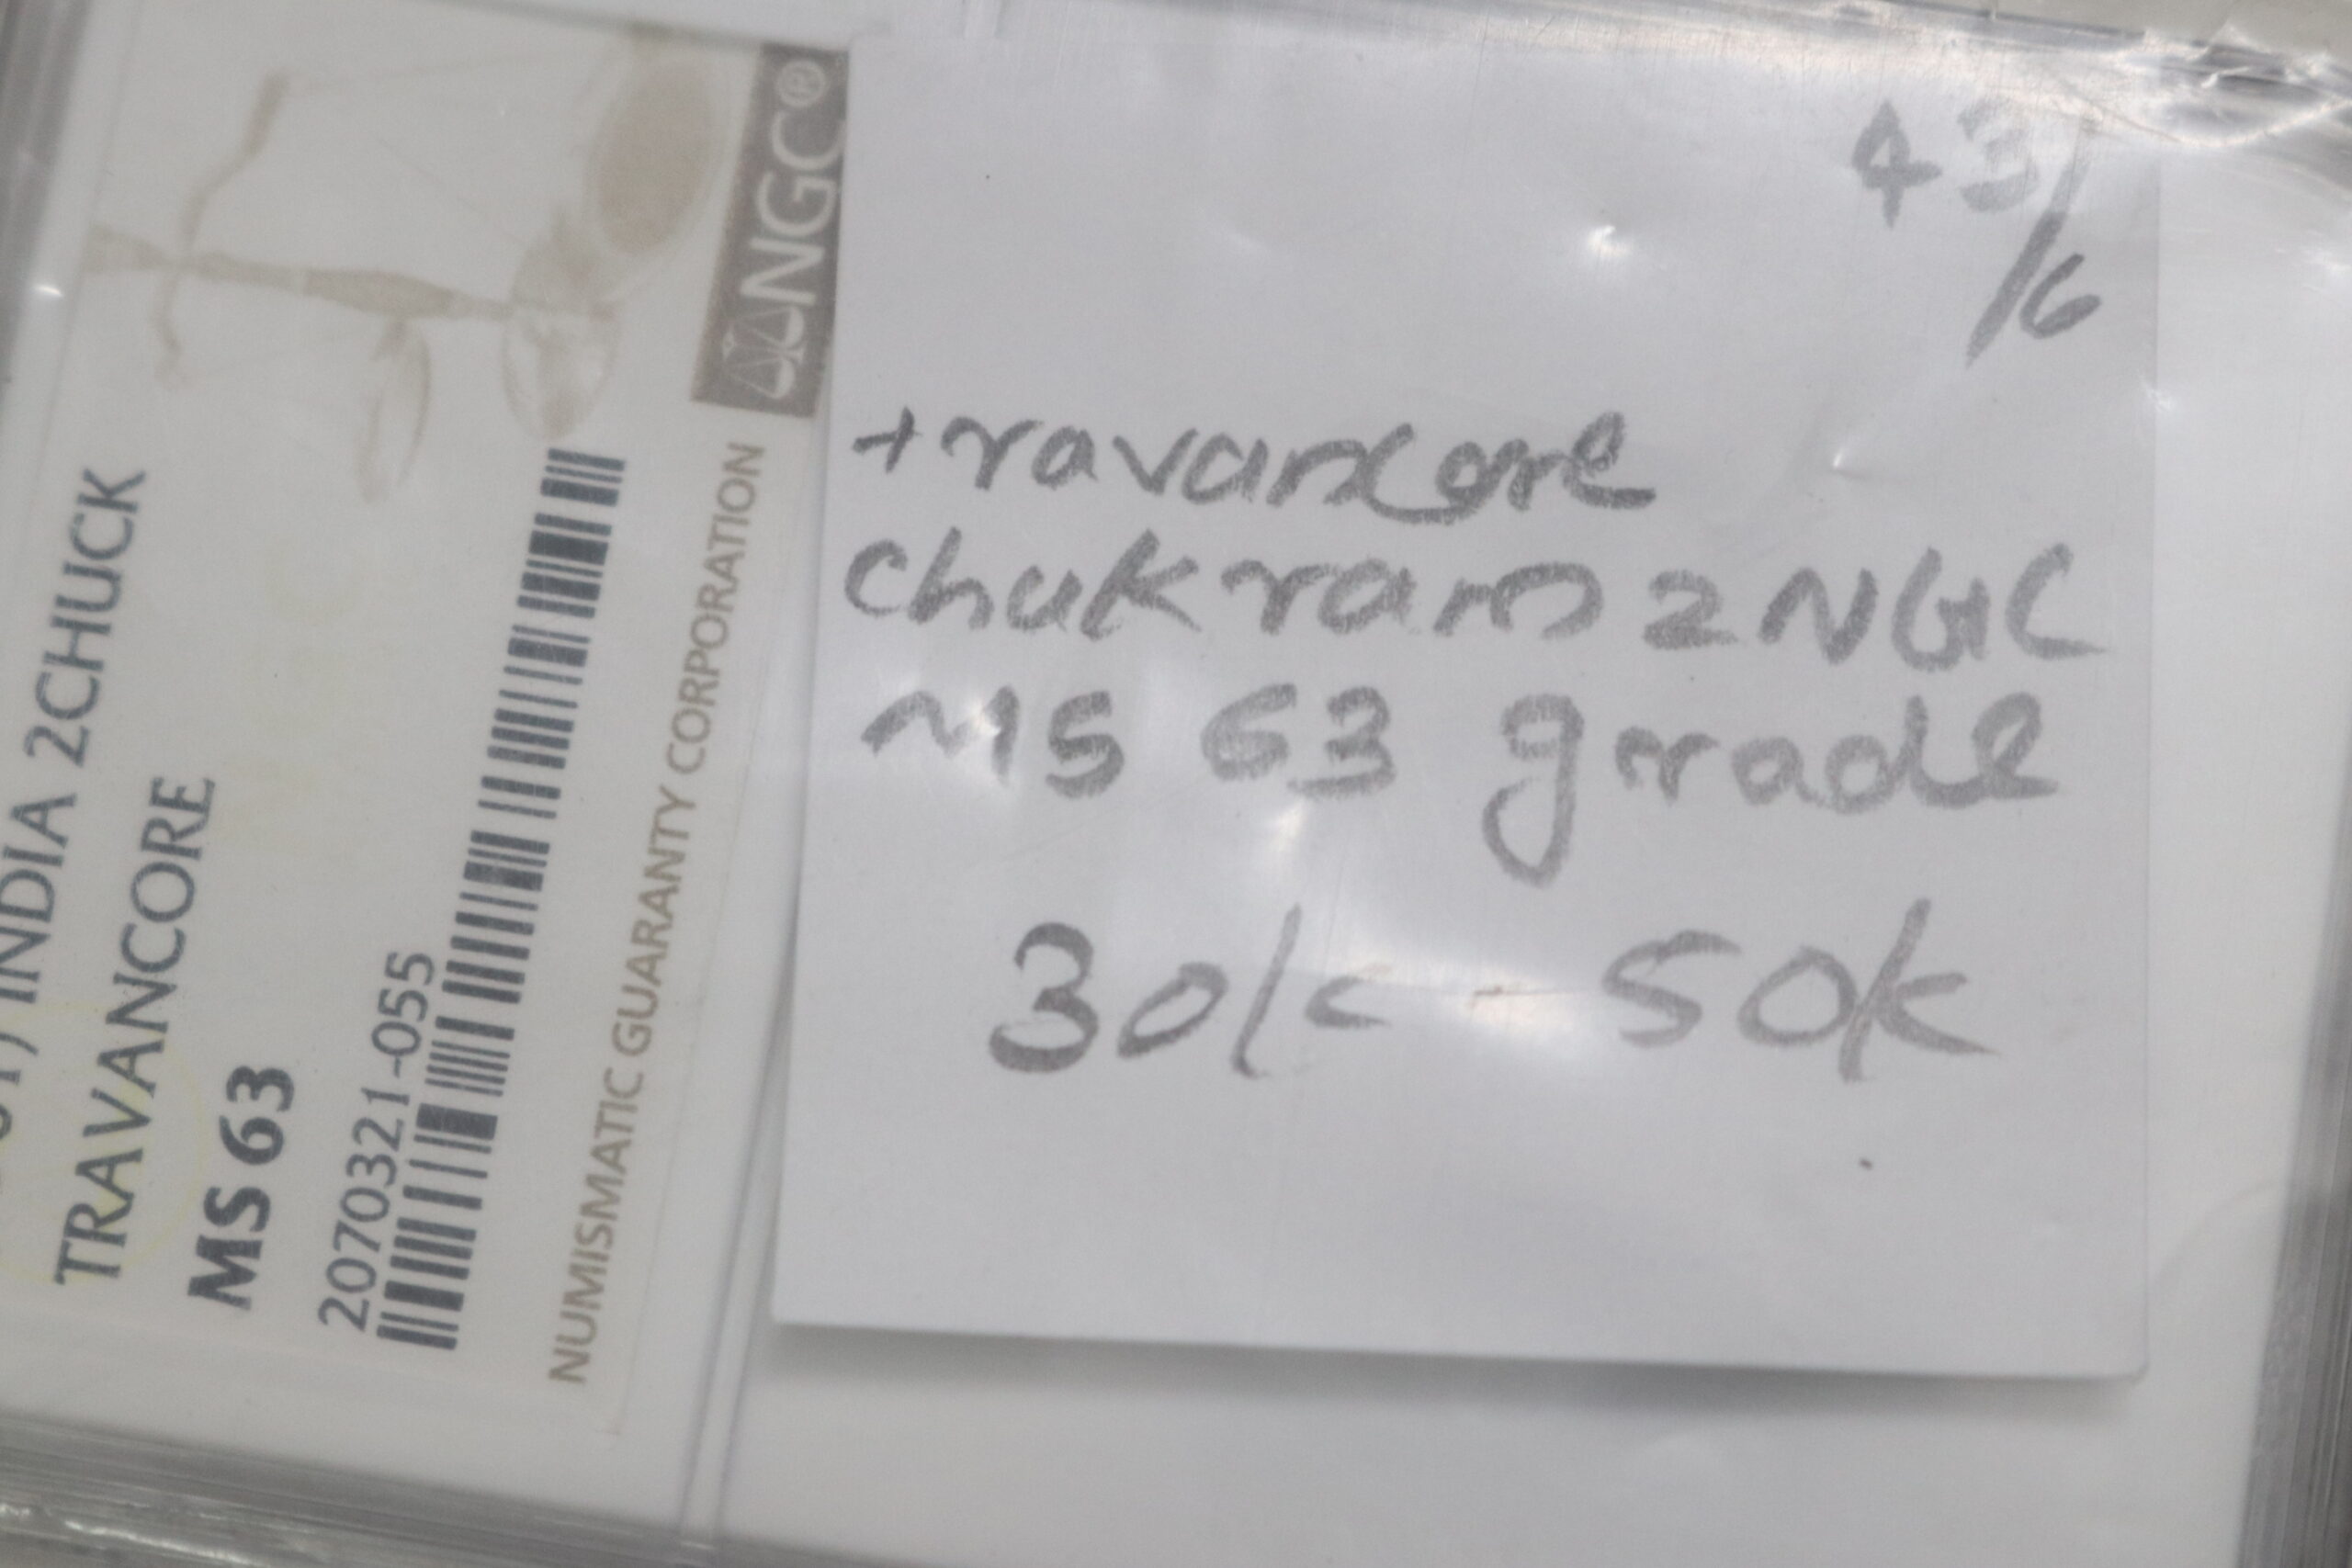 INDIA 2CHUCK
TRAVANCORE
MS 63
2070321-055
NUMISMATIC GUARANTY CORPORATION
NGC®
43/6
travancore
chukram 2 NGC
MS 63 grade
30k - 50k